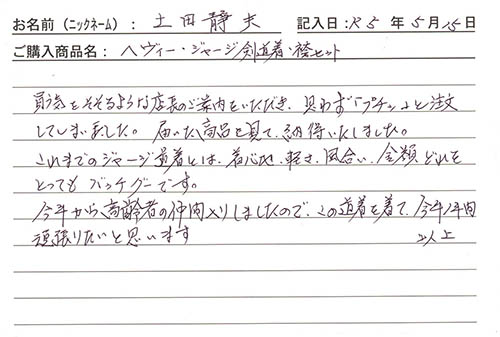 お名前（ニックネーム）： 土田静夫 記入日：R5年5月15日
ご購入商品名： ヘヴィー・ジャージ剣道着・袴セット
買う気をそそるような店長のご案内をいただき、思わず「プチッ」と注文
してしまいました。届いた商品を見て、納得いたしました。
これまでのジャージ道着とは、着心地、軽さ、風合い、金額どれを
とってもバッチグーです。
今年から高齢者の仲間入りしましたので、この道着を着て、今年1年間
頑張りたいと思います
以上